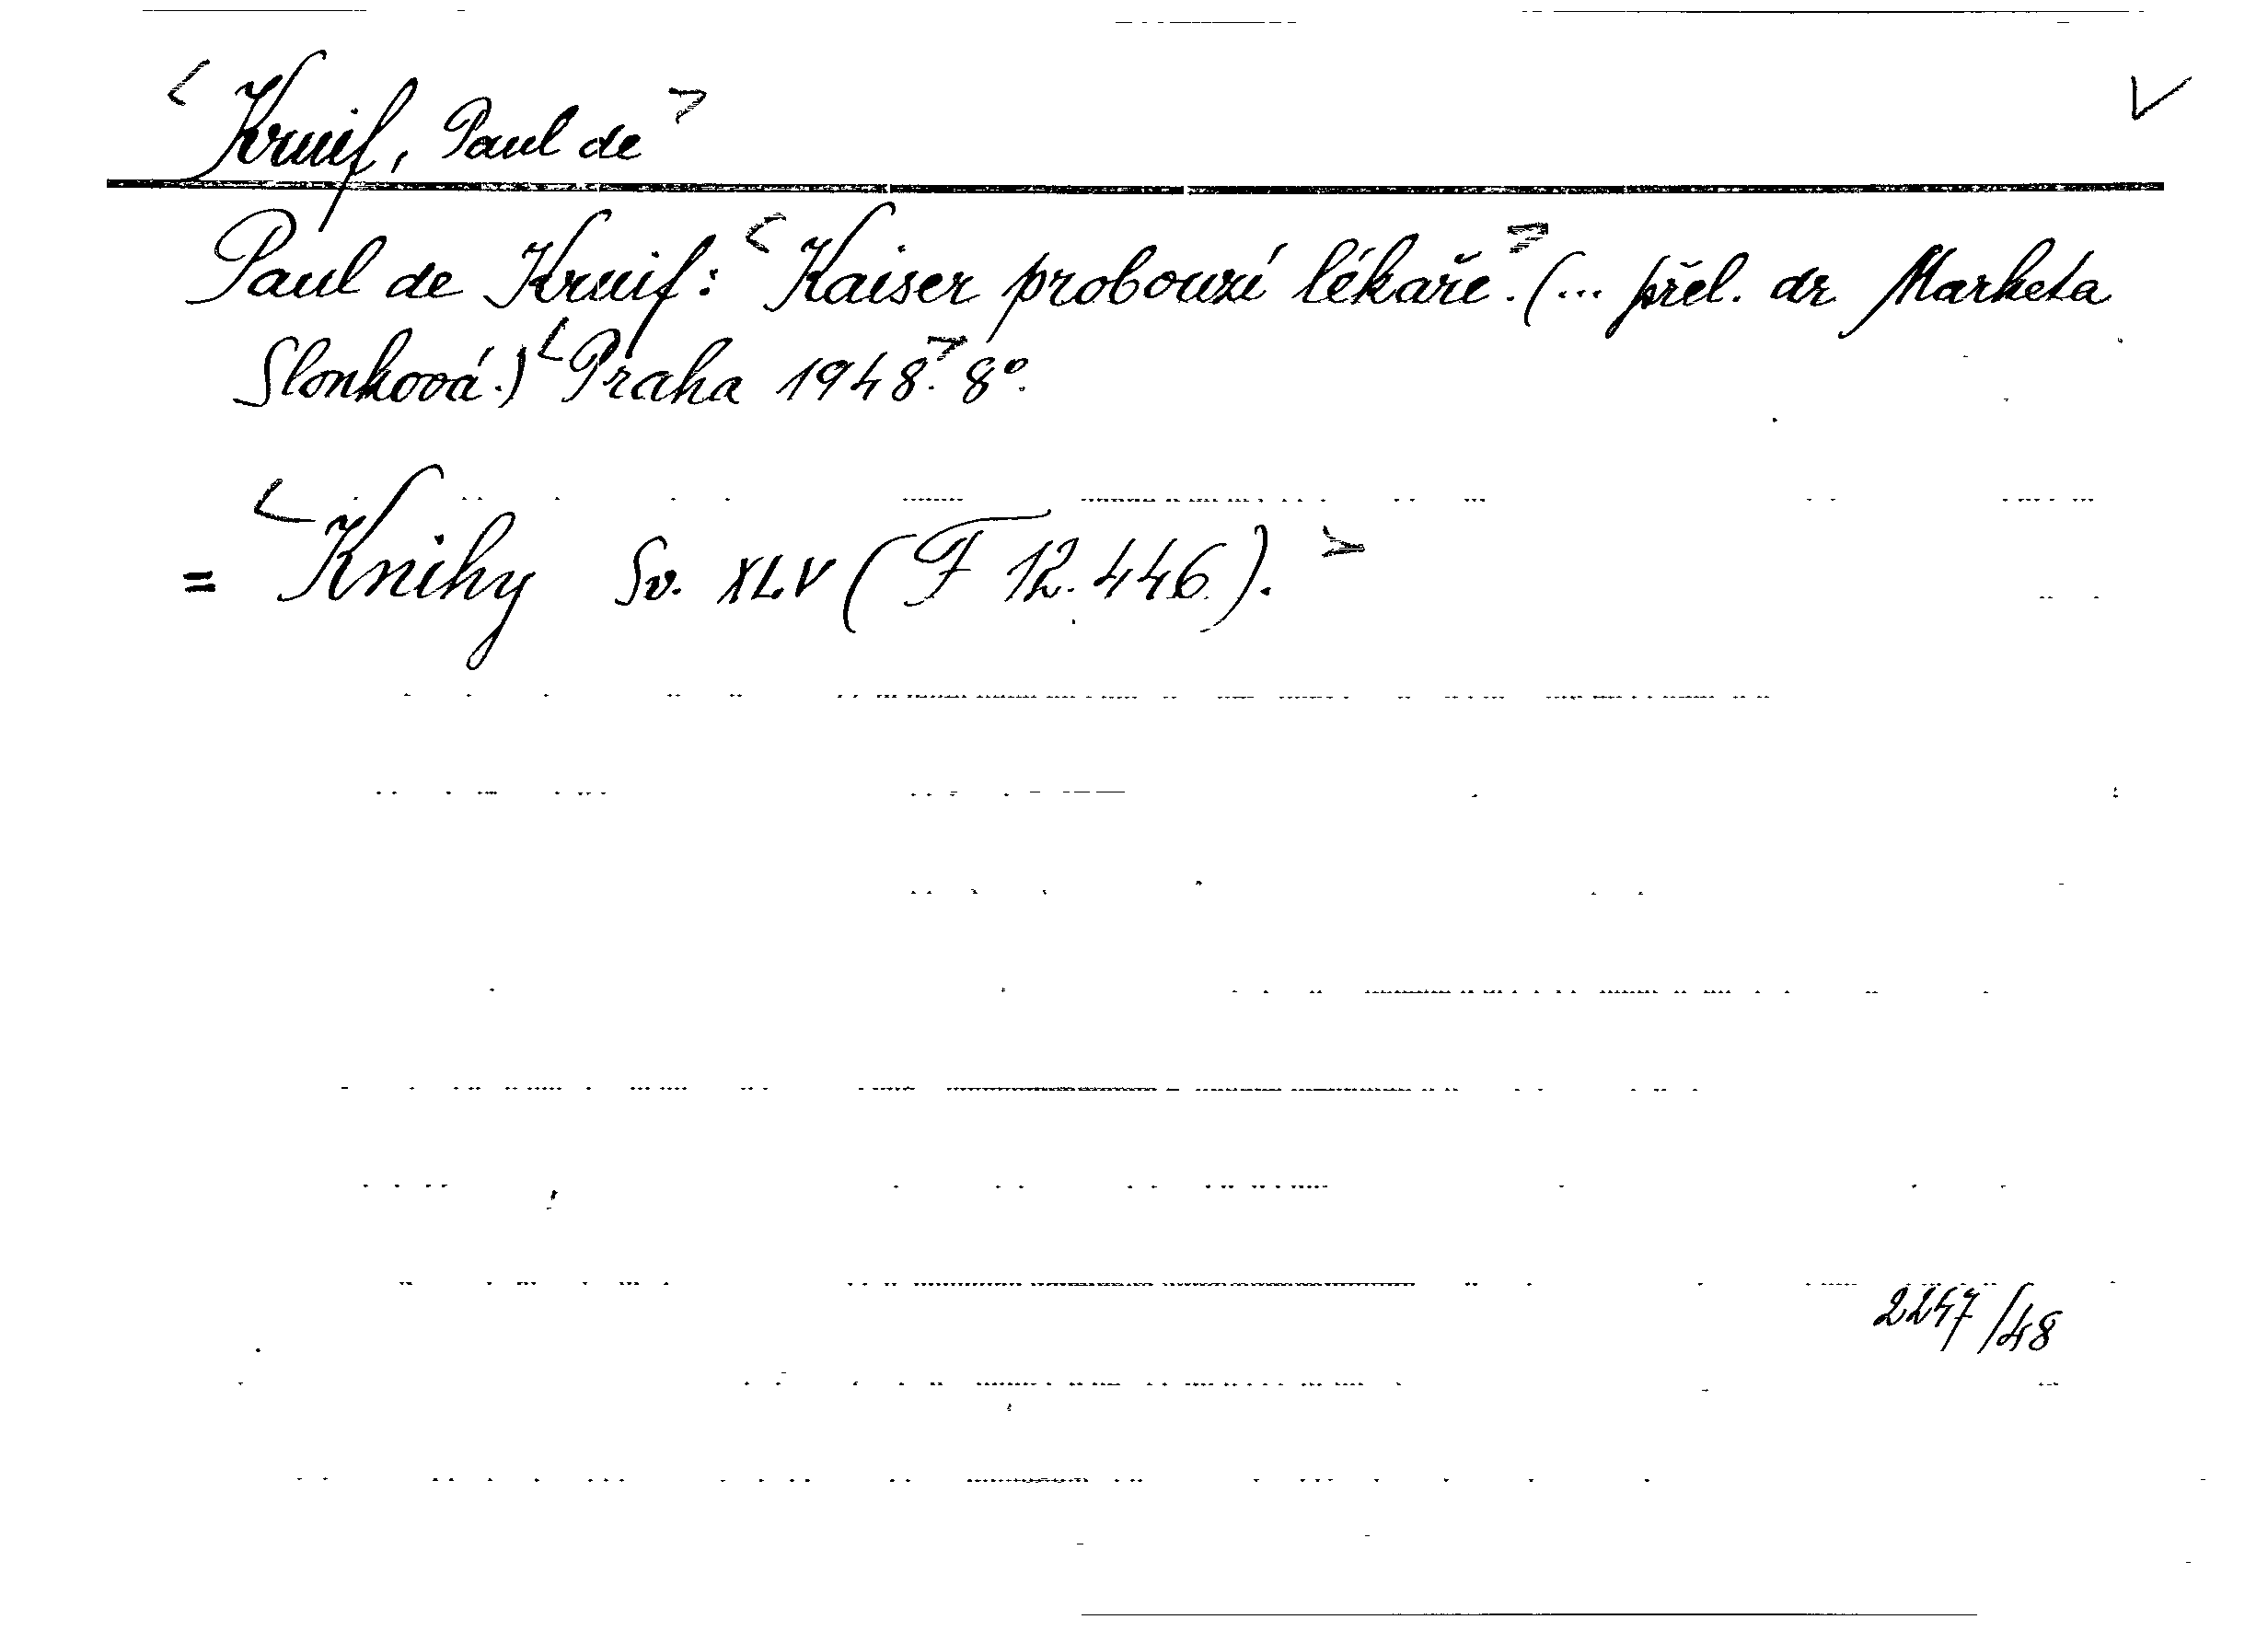 < Kruif, Paul de > V
Paul de Kruif: <Kaiser probouzí lékaře>. (... přel. dr Marketa
Slonková.) <Praha 1948>. 8°.
= <Knihy Sv. XLV (F 12.446). >
2247/48